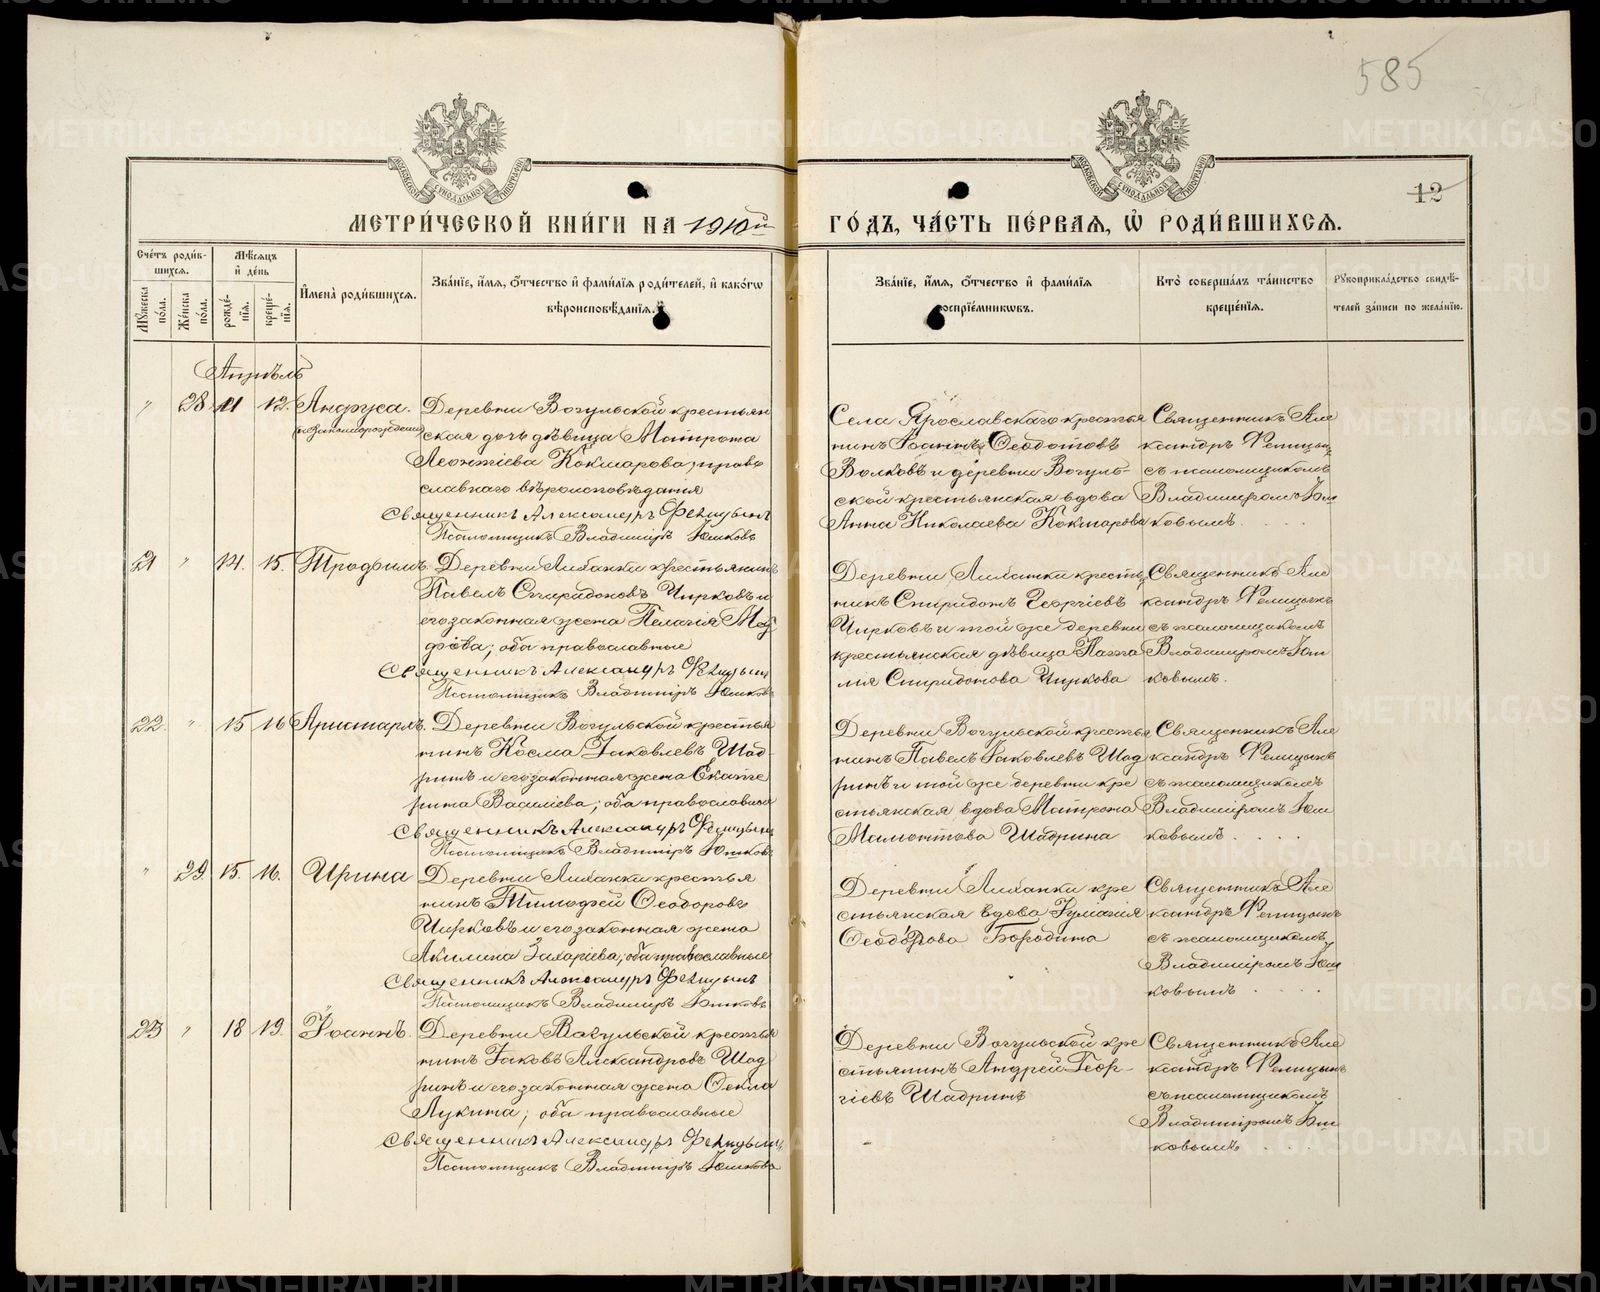 585
12
МОСКОВСКОЙ СУНОДАЛЬНОЙ ТИПОГРАФІИ
МОСКОВСКОЙ СУНОДАЛЬНОЙ ТИПОГРАФІИ
МЕТРИ́ЧЕСКОЙ КНИ́ГИ НА 1910й ГО́ДЪ, ЧА́СТЬ ПЕ́РВАЯ, Ѡ РОДИ́ВШИХСЯ.
Сче́тъ роди́в-
шихся.
Мѣ́сяцъ
и҆ де́нь
Мꙋ́жеска
по́ла.
Же́нска
по́ла.
рожде́-
нїя.
креще́-
нїя.
И҆мена̀ роди́вшихся.
Зва́нїе, и҆́мя, ѻ҆́тчество и҆ фами́лїя роди́телей, и҆ како́гѡ
вѣроисповѣ́данїя.
Зва́нїе, и҆́мя, ѻ҆́тчество и҆ фами́лїя
воспрїе́мникѡвъ.
Кто̀ соверша́лъ та́инство
креще́нїя.
Рꙋкоприкла́дство свидѣ́-
телей за́писи по жела́нїю.
Апрѣль
" 28 11 12. Андруса.
незаконнорожденная
Деревни Вогульской крестьян
ская дочь дѣвица Матрона
Леонтіева Кокшарова, право
славнаго вѣроисповѣданія
Священникъ Александръ Фелицынъ
Псаломщикъ Владиміръ Юшковъ
Села Ярославскаго крестья
нинъ Іоаннъ Ѳеодотовъ
Волковъ и деревни Вогуль-
ской крестьянская вдова
Анна Николаева Кокшарова
Священникъ Але
ксандръ Фелицынъ
съ псаломщикомъ
Владиміромъ Юш
ковымъ
21 " 14. 15. Трофимъ.
Деревни Лиханки крестьянинъ
Павелъ Спиридоновъ Чирковъ и
его законная жена Пелагія Меѳ
фова; оба православные
Священникъ Александръ Фелицынъ
Псаломщикъ Владиміръ Юшковъ
Деревни Лиханки крестья
нинъ Спиридонъ Георгіевъ
Чирковъ и той же деревни
крестьянская дѣвица Ната
лія Спиридонова Чиркова
Священникъ Але
ксандръ Фелицынъ
съ псаломщикомъ
Владиміромъ Юш
ковымъ.
22. " 15 16 Аристархъ.
Деревни Вогульской крестья
нинъ Косма Іаковлевъ Шад-
ринъ и его законная жена Екате
рина Василіева; оба православные
Священникъ Александръ Фелицынъ
Псаломщикъ Владиміръ Юшковъ
Деревни Вогульской крестья
нинъ Павелъ Іаковлевъ Шад
ринъ и той же деревни кре
стьянская вдова Матрона
Мамонтова Шадрина
Священникъ Але
ксандръ Фелицынъ
съ псаломщикомъ
Владиміромъ Юш
ковымъ
" 29. 15. 16. Ирина
Деревни Лиханки крестья
нинъ Тимофей Ѳеодоровъ
Чирковъ и его законная жена
Акилина Захаріева; оба православные
Священникъ Александръ Фелицынъ
Псаломщикъ Владиміръ Юшковъ
Деревни Лиханки кре
стьянская вдова
Ѳеодорова Бородина
Священникъ Але
ксандръ Фелицынъ
съ псаломщикомъ
Владиміромъ Юш
ковымъ
23 " 18 19. Іоаннъ.
Деревни Вогульской крестья
нинъ Іаковъ Александровъ Шад
ринъ и его законная жена Ѳекла
Лукина; оба православные
Священникъ Александръ Фелицынъ
Псаломщикъ Владиміръ Юшковъ
Деревни Вогульской кре
стьянинъ Андрей Геор-
гіевъ Шадринъ
Священникъ Але
ксандръ Фелицынъ
съ псаломщикомъ
Владиміромъ Юш
ковымъ
METRIKI.GASO-URAL.RU